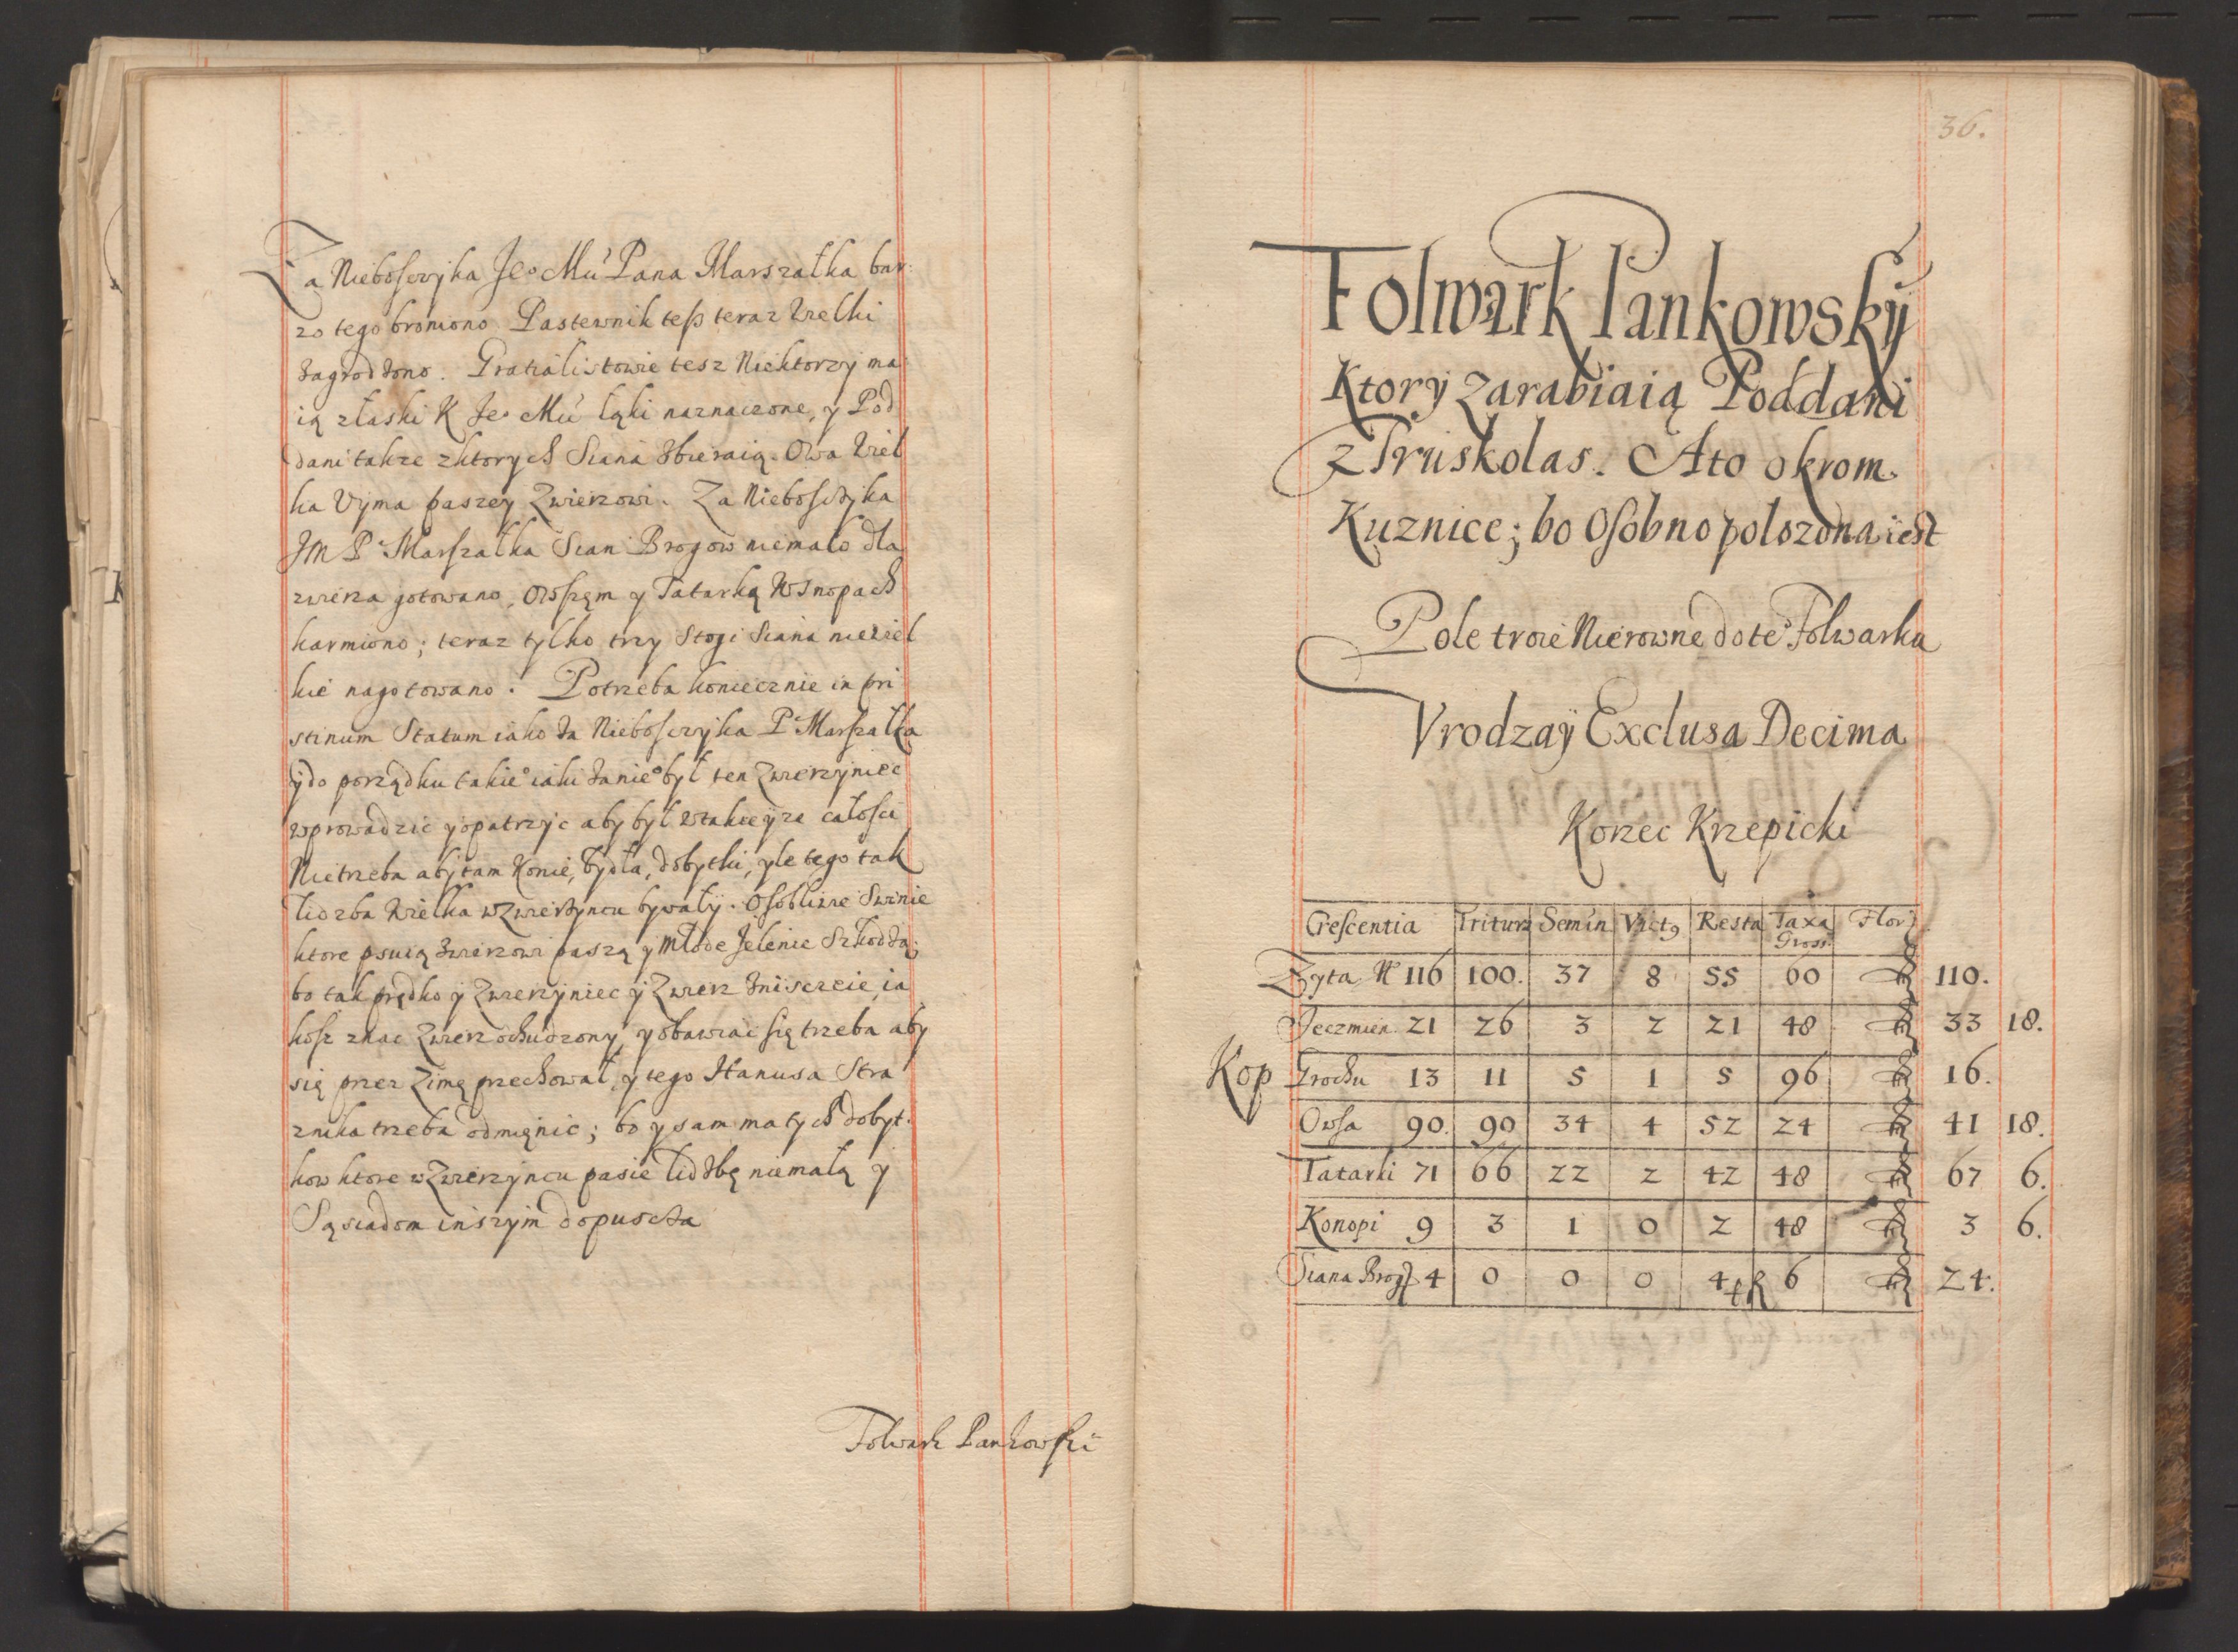 Za Nieboszczyka Jeo Mći Pana Marszałka bar:
zo tego broniono. Pastewnik tesz teraz Wielki
zagrodzono. Gratialistowie tesz Niektorzy ma
ią złaski K Je Mći łąki naznaczone, y Pod
dani także zktorych Siana zbieraią. Owa Wiel
ka Vyma paszey Zwierzowi. Za Nieboszczyka
Jm P Marszałka Sian Brogow niemało dla
zwierza gotowano, Owszęm y Tatarką W snopach
karmiono; teraz tylko trzy Stogi Siana niewiel
kie nagotowano. Potrzeba koniecznie in pri
stinum Statum iako za Nieboszczyka P Marszałka
ÿ do porządku takieo iaki zanieo był ten Zwierzyniec
wprowadzic y opatrzyc aby był wtakieyze całosci
Nietrzeba aby tam Konie, bydła, dobytki, yle tego tak
liczba Wielka w Zwierzyncu bywały. Osobliwie Swinie
ktore psuią zwierzowi paszą y Młode Jelenie Szkodzą;
bo tak prędko ÿ Zwierzyniec ÿ Zwierz zniszczeie, ia
kosz znac Zwierz ochudzony, y obawiac się trzeba aby
się przez Zimę przechował, y tego Hanusa Stra
znika trzeba odmięnic; bo y sam ma tych dobyt:
kow ktore w Zwierzyncu pasie liczbę niemałą y
Sąsiadom inszym dopuscza
Folwark Pankowski
36.
Folwark Pankowskÿ
Ktorÿ zarabiaią Poddani
z Truskolas. Ato okrom
Kuznice; bo Osobno polozona iest
Pole troie Nierowne do teo Folwarku
Vrodzaÿ Exclusa Decima
Korzec Krzepicki
Crescentia Tritura Semin Vict9 Resta Taxa Gross. Flor
Zyta N 116 100. 37 8 55 60 110.
Jeczmien 21 26 3 2 21 48 33 18.
Kop Grochu 13 11 5 1 5 96 16.
Owsa 90. 90 34 4 52 24 41 18.
Tatarki 71 66 22 2 42 48 67 6.
Konopi 9 3 1 0 2 48 3 6.
Siana Brog 4 0 0 0 4 fl 6 24.